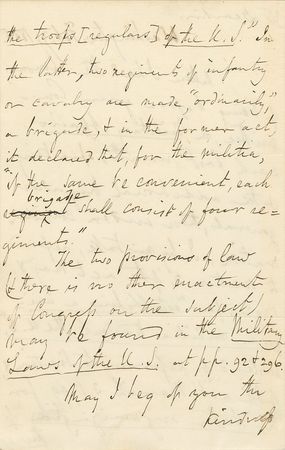 the troops [regulars] of the U.S." In
the latter, two regiments of infantry
or cavalry are made, "ordinarily,"
a brigade, & in the former act,
it declared that, for the militia,
"if the same be convenient, each
brigade
shall consist of four re=
giments."
The two provisions of law
(& there is no other enactment
of Congress on the subject)
may be found in the Military
Laws of the U.S. at pp. 92 & 296.
May I beg of you the
kindness